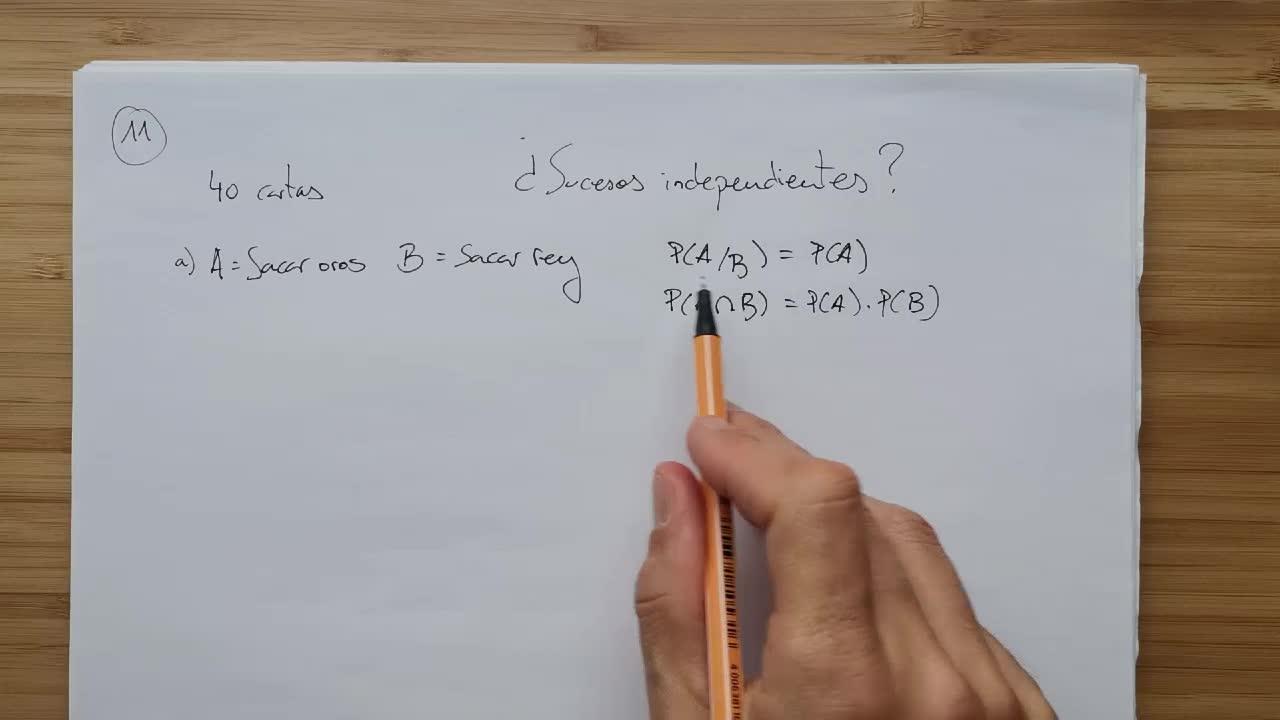 11
40 cartas
¿Sucesos independientes?
a) A = Sacar oros B = Sacar rey
P(A/B) = P(A)
P( ∩B) = P(A)·P(B)